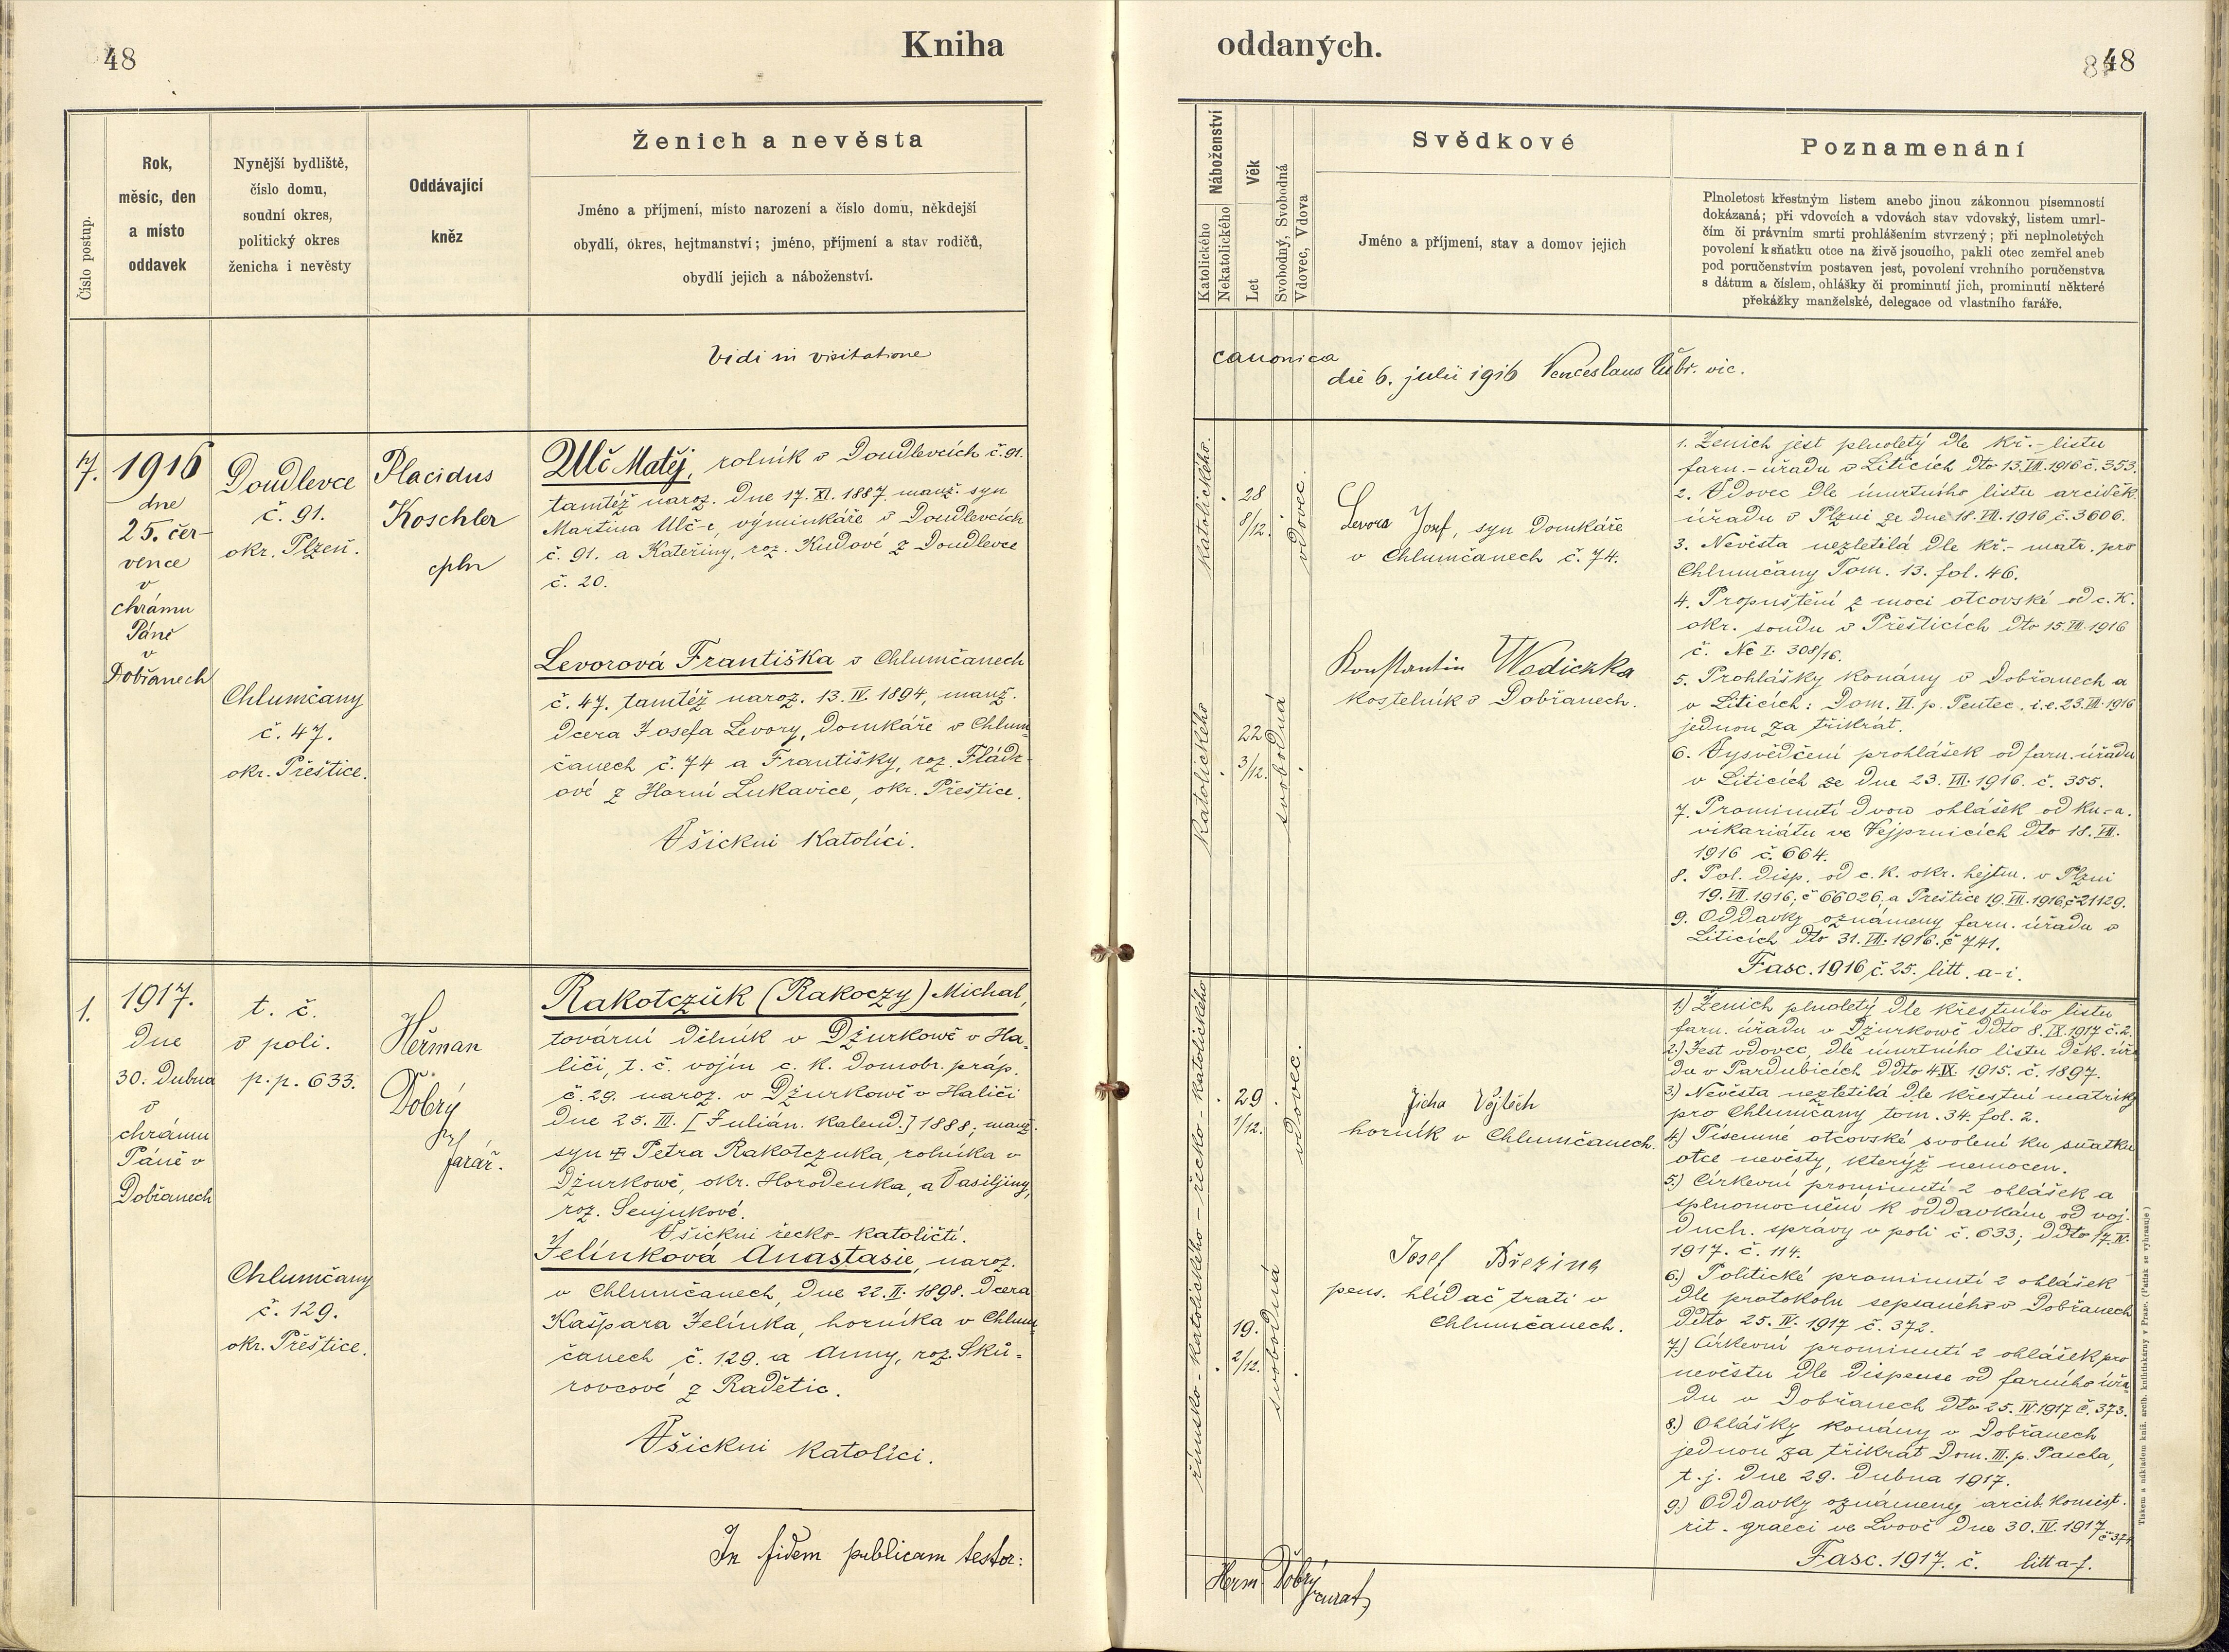 48
Kniha
Číslo postup.
Rok,
měsíc, den
a místo
oddavek
Nynější bydliště,
číslo domu,
soudní okres,
politický okres
ženicha i nevěsty
Oddávající
kněz
Ženich a nevěsta
Jméno a příjmení, místo narození a číslo domu, někdejší
obydlí, okres, hejtmanství; jméno, příjmení a stav rodičů,
obydlí jejich a náboženství.
Vidi in visitatione
7.
1916
dne
25. čer-
vence
v
chrámu
Páně
v
Dobřanech
Doudlevce
č. 91.
okr. Plzeň.
Chlumčany
č. 47.
okr. Přeštice.
Placidus
Koschler
cpln
Ulč Matěj, rolník v Doudlevcích č. 91.
tamtéž naroz. dne 17. XI. 1887. manž. syn
Martina Ulč-e, výminkáře v Doudlevcích
č. 91. a Kateřiny, roz. Kudové z Doudlevce
č. 20.
Levorová Františka v Chlumčanech
č. 47. tamtéž naroz. 13. IV. 1894, manž.
dcera Josefa Levory, domkáře v Chlum-
čanech č. 74 a Františky, roz. Fládr-
ové z Horní Lukavice, okr. Přeštice.
Všickni katolíci.
1.
1917.
dne
30. dubna
v
chrámu
Páně v
Dobřanech
t. č.
v poli.
p. p. 633.
Chlumčany
č. 129.
okr. Přeštice.
Heřman
Dobrý
farář.
Rakotczuk (Rakoczy) Michal,
tovární dělník v Džurkowě v Ha-
liči, t. č. vojín c. k. domobr. práp.
č. 29. naroz. v Džurkowě v Haliči
dne 25. III. [Julián. kalend.] 1888; manž.
syn Petra Rakotczuka, rolníka v
Džurkowě, okr. Horodenka, a Vasiljiny,
roz. Senjukové.
Všickni řecko-katoličtí.
Jelínková Anastasie, naroz.
v Chlumčanech, dne 22. II. 1898. dcera
Kašpara Jelínka, horníka v Chlum-
čanech č. 129. a Anny, roz. Sků-
rovcové z Radětic.
Všickni katolíci.
In fidem publicam testor:
oddaných.
48
Náboženství
Katolického
Nekatolického
Věk
Let
Svobodný, Svobodná
Vdovec, Vdova
Svědkové
Jméno a příjmení, stav a domov jejich
Poznamenání
Plnoletost křestným listem anebo jinou zákonnou písemností
dokázaná; při vdovcích a vdovách stav vdovský, listem umrl-
čím či právním smrti prohlášením stvrzený; při neplnoletých
povolení k sňatku otce na živě jsoucího, pakli otec zemřel aneb
pod poručenstvím postaven jest, povolení vrchního poručenstva
s dátum a číslem, ohlášky či prominutí jich, prominutí některé
překážky manželské, delegace od vlastního faráře.
canonica
die 6. julii 1916 Venceslaus vic.
katolického.
28
8/12.
vdovec.
katolického
22
3/12.
svobodná
Levora Josef, syn domkáře
v Chlumčanech č. 74.
Konstantin Wodiczka
kostelník v Dobřanech.
1. Ženich jest plnoletý dle kř.-listu
farn.-úřadu v Liticích dto 13. VII. 1916 č. 353.
2. Vdovec dle úmrtního listu arciděk.
úřadu v Plzni ze dne 18. VII. 1916 č. 3606.
3. Nevěsta nezletilá dle kř.-matr. pro
Chlumčany Tom. 13. fol. 46.
4. Propuštění z moci otcovské od c. k.
okr. soudu v Přešticích dto 15. VII. 1916
č. Nc I. 308/16.
5. Prohlášky konány v Dobřanech a
v Liticích: Dom. VI. p. Pentec. i. e. 23. VII. 1916
jednou za třikrát.
6. Vysvědčení prohlášek od farn. úřadu
v Liticích ze dne 23. VII. 1916. č. 355.
7. Prominutí dvou ohlášek od
vikariátu ve Vejprnicích dto 18. VII.
1916 č. 664.
8. Pol. disp. od c. k. okr. hejtm. v Plzni
19. VII. 1916, č 66026, a Přeštice 19. VII. 1916, č 21129.
9. Oddavky oznámeny farn. úřadu v
Liticích dto 31. VII. 1916. č 741.
Fasc. 1916 č. 25. litt. a-i.
řecko-katolického
29
1/12.
vdovec.
římsko-katolického
19.
2/12.
svobodná
Jícha Vojtěch
horník v Chlumčanech.
Josef Březina
pens. hlídač trati v
Chlumčanech.
1.) Ženich plnoletý dle křestního listu
farn. úřadu v Džurkowě ddto 8. IX. 1917 č. 2.
2.) Jest vdovec dle úmrtního listu děk. úřa-
du v Pardubicích ddto 4. IX. 1915. č. 1897.
3.) Nevěsta nezletilá dle křestní matriky
pro Chlumčany tom. 34. fol. 2.
4.) Písemné otcovské svolení ku sňatku
otce nevěsty, kterýž nemocen.
5.) Církevní prominutí 2 ohlášek a
splnomocnění k oddavkám od voj.
duch. správy v poli č. 633; ddto 17. IV.
1917. č. 114.
6.) Politické prominutí 2 ohlášek
dle protokolu sepsaného v Dobřanech
ddto 25. IV. 1917 č. 372.
7.) Církevní prominutí 2 ohlášek pro
nevěstu dle dispense od farního úřa-
du v Dobřanech dto 25. IV. 1917 č. 373.
8.) Ohlášky konány v Dobřanech
jednou za třikrát Dom. III. p. Pascha,
t. j. dne 29. dubna 1917.
9.) Oddavky oznámeny arcib. konsist.
rit. graeci ve Lvově dne 30. IV. 1917
č. 374
Fasc. 1917. č. litt a-f.
Herm. Dobrý
curat
Tiskem a nákladem kníž. arcib. knihtiskárny v Praze. (Patisk se vyhrazuje)